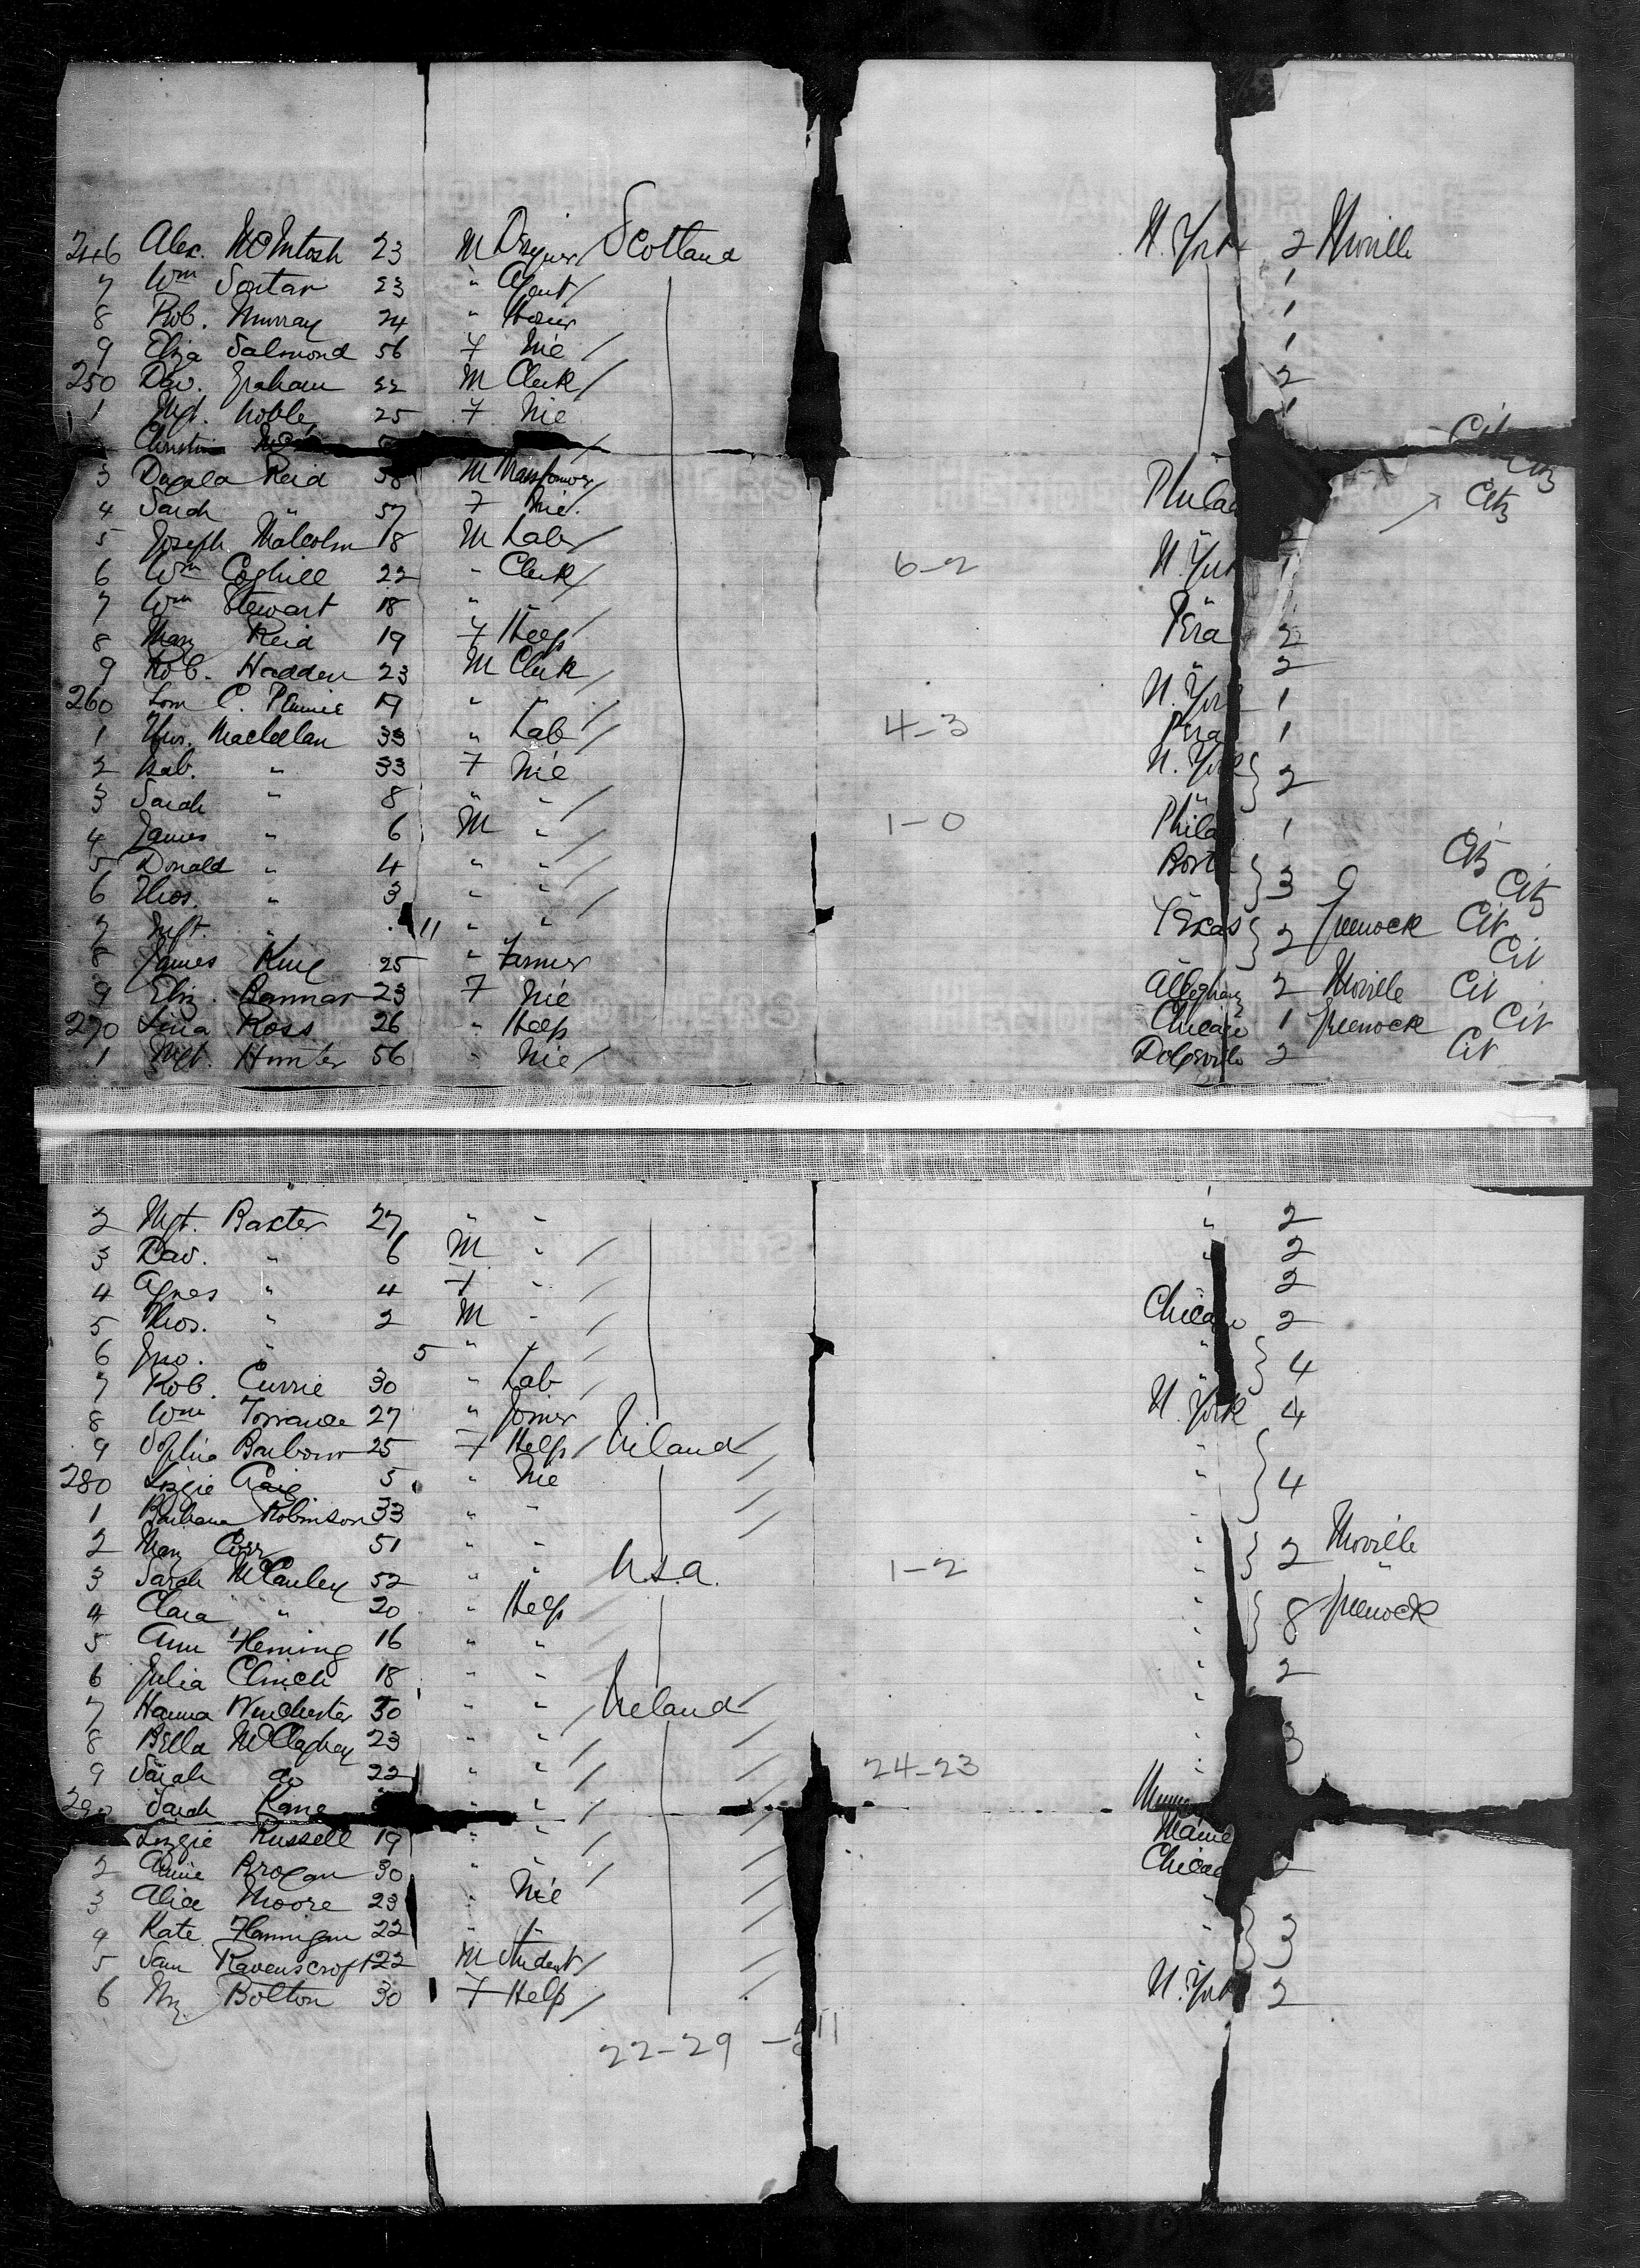 246 Alex. McIntosh 23 M Scotland N. York 2 Moville
7 Wm Soutar 23 " Agent 1
8 Rob. Murray 24 " 1
9 Eliza Salmond 56 F Nil 1
250 Dav. Graham 22 M Clerk 2
1 Mgt. Noble 25 F Nil 1
Christina Cit
3 Reid 58 M Citz
4 Sarah " 57 F Nil. Philad Citz
5 Joseph Malcolm 18 M Lab 2
6 Wm Coghill 22 " Clerk 6-2 N. York 1
7 Wm Stewart 18 " " "
8 Mary Reid 19 F Help Pera 2
9 Rob. Hadden 23 M Clerk " 2
260 C. 19 " " N. York 1
1 Maclellan 33 " Lab 4-3 Pera 1
2 Isab. " 33 F Nil N. York } 2
3 Sarah " 8 " " "
4 James " 6 M " 1-0 Phila 1
5 Donald " 4 " " Bost } 3 Citz
6 Thos. " 3 " " Citz
7 Mgt. " 11 " " Texas } 2 Greenock Cit
8 James King 25 " Farmer Cit
9 Eliz. Bannar 23 F Nil Allegheny 2 Moville Cit
270 Lina Ross 26 " Help Chicago 1 Greenock Cit
1 Mgt. Hunter 56 " Nil 2 Cit
2 Mgt. Baxter 27 " " " 2
3 Dav. " 6 M " " 2
4 Agnes " 4 F " 2
5 Thos. " 2 M " Chicago 2
6 Jno. " 5 " " " } 4
7 Rob. Currie 30 " Lab "
8 Wm Torrance 27 " Joiner N. York 4
9 Sophia Barbour 25 F Help Ireland " } 4
280 Lizzie Craig 5 " Nil
1 Barbara Robinson 33 " " "
2 Mary Corr 51 " " " } 2 Moville
3 Sarah McCauley 52 " " U.S.A. 1-2 " "
4 Clara " 20 " Help " } 8 Greenock
5 Ann Fleming 16 " " "
6 Julia Clinch 18 " " " 2
7 Hanna Winchester 30 " " Ireland "
8 Bella McClaghey 23 " " " 3
9 Sarah do 22 " " 24-23 "
290 Sarah Kane " "
Lizzie Russell 19 " " Maine
2 Annie Brogan 30 " " Chicag 2
3 Alice Moore 23 " Nil "
4 Kate Flannigan 22 " " " } 3
5 Sam Ravenscroft 22 M Student
6 Bolton 30 F Help N. York 2
22-29 - 11